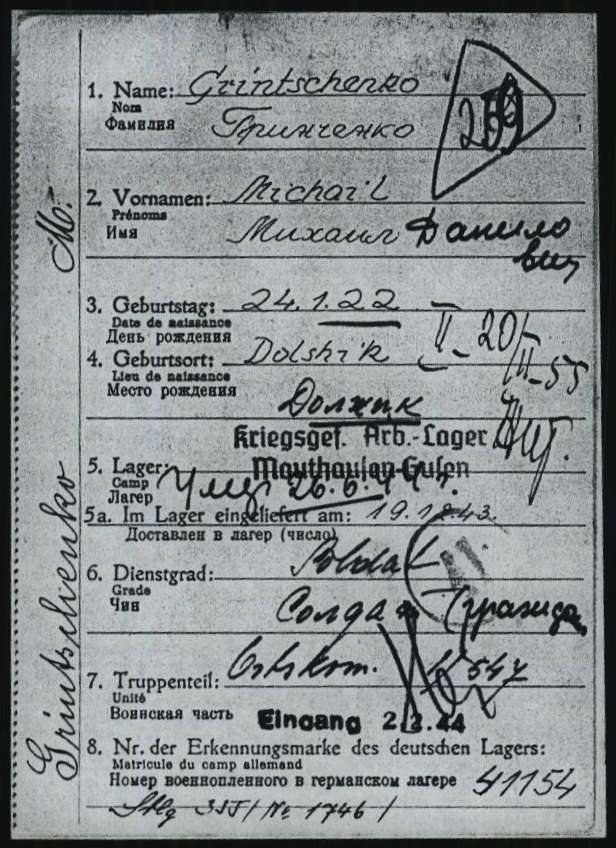 1. Name: Grintschenko
Nom
Фамилия Гринченко
259
2. Vornamen: Michail
Prénoms
Имя Михаил Данило
вич
3. Geburtstag: 24.1.22
Date de naissance
День рождения
II-20/
III-55
4. Geburtsort: Dolshik
Lieu de naissance
Место рождения
Должик
Kriegsgef. Arb.-Lager
5. Lager: Mauthausen-Gusen
Camp
Лагерь Умер 26.6.44 г.
5a. Im Lager eingeliefert am:
Доставлен в лагерь (число)
6. Dienstgrad: Soldat
Grade
Чин Солдат
7. Truppenteil: Ortskom.
Unité
Воинская часть Eingang 2.2.44
8. Nr. der Erkennungsmarke des deutschen Lagers:
Matricule du camp allemand
Номер военнопленного в германском лагере 41154
Stlg 355/ № 1746/
Grintschenko M.